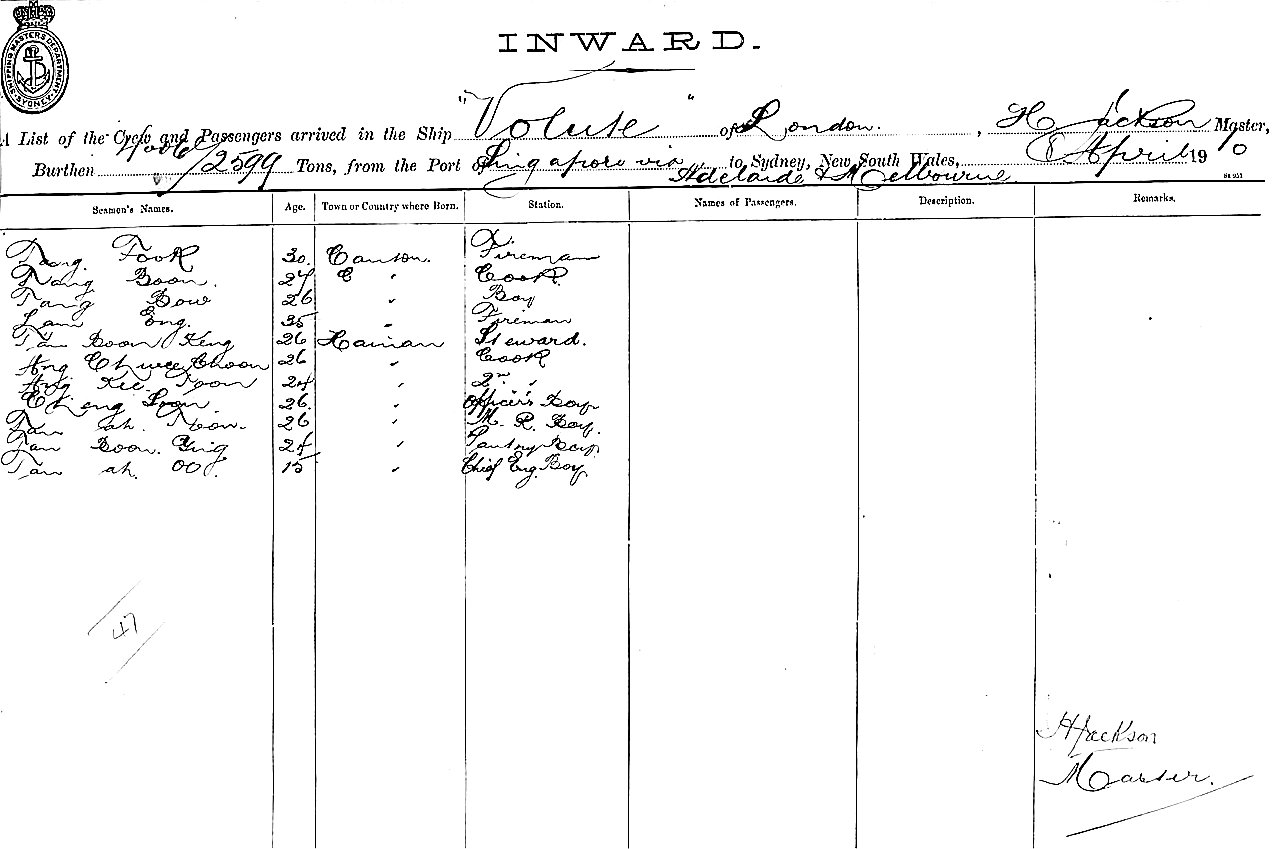 SHIPPING MASTERS DEPARTMENT
SYDNEY
INWARD.
A List of the Crew and Passengers arrived in the Ship "Volute" of London. , H Jackson Master,
Burthen /2599 Tons, from the Port of Singapore via Adelaide & Melbourne to Sydney, New South Wales, April 1910
Seamen's Names. Age. Town or Country where Born. Station. Names of Passengers. Description. Remarks.
Tang Fook 30 Canton. Fireman
Boon. 27 C " Cook
Tang Bow 26 " Boy
Lam Eng. 35 " Fireman
Tan Boon Keng 26 Hainan Steward.
Ang Chwee Choon 26 " Cook
Ang Kee Toon 24 " 2nd "
Cheng Soon. 26. " Officer's Boy
Tan ah. Noon. 26 " M. R. Boy.
Tan Boon. 24 " Pantry Boy
Tan ah. OO. 15 " Chief Eng. Boy.
47
H Jackson
Master.